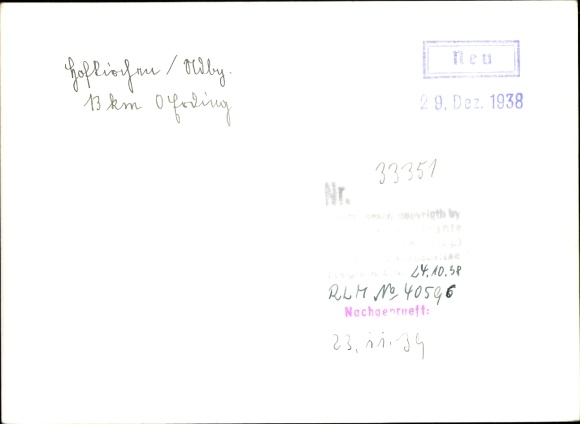 Hofkirchen / Ndby.
13 km O Erding
Neu
29. Dez. 1938
33351
Nr.
copyrigth by
24.10.38
RLM No 40596
Nachgeprueft:
23. 11. 39